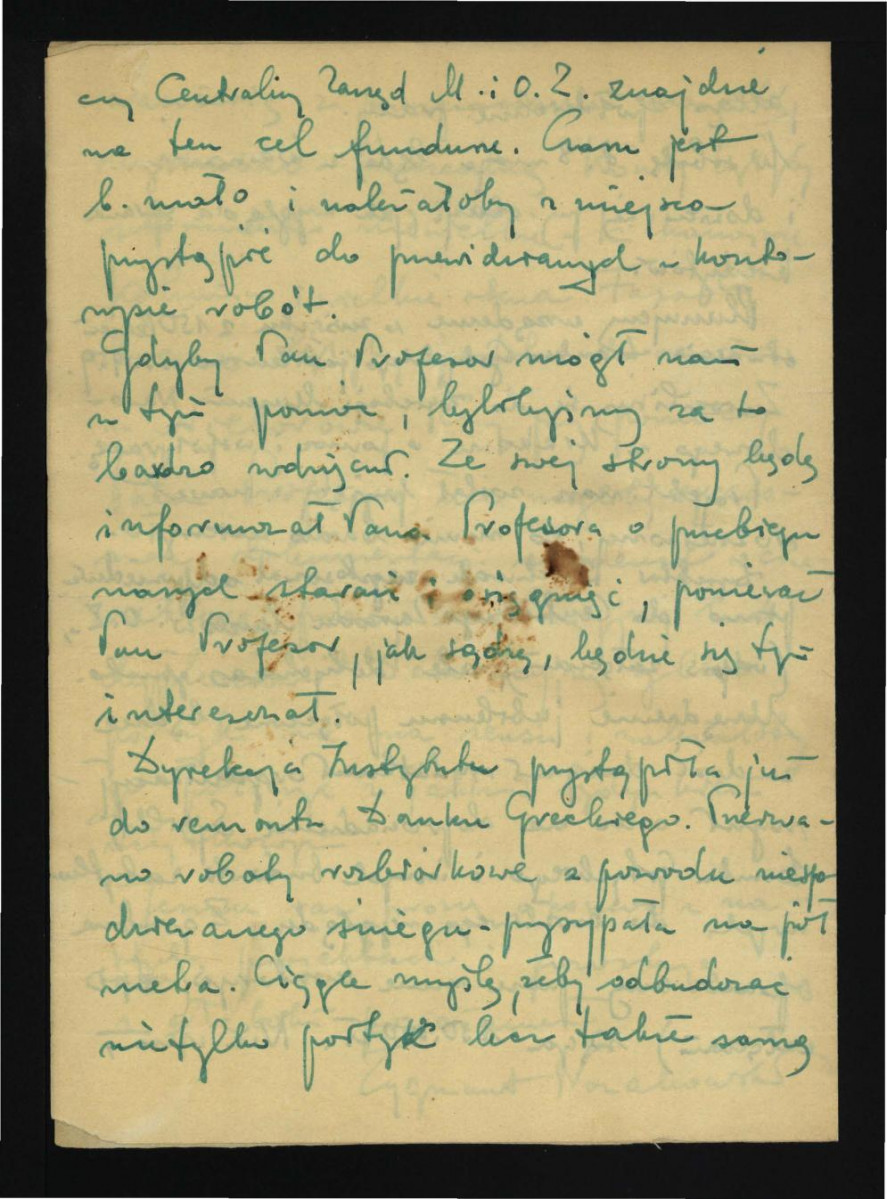 czy Centralny Zarząd M. i O. Z. znajdzie
na ten cel fundusze. Czasu jest
b. mało i należałoby z miejsca
przystąpić do przewidzianych w koszto-
rysie robót.
Gdyby Pan Profesor mógł nam
w tym pomóc, bylibyśmy za to
bardzo wdzięczni. Ze swej strony będę
informował Pana Profesora o przebiegu
naszych starań i osiągnięć, ponieważ
Pan Profesor, jak sądzę, będzie się tym
interesował.
Dyrekcja Instytutu przystąpiła już
do remontu Domku Greckiego. Przerwa-
no roboty rozbiórkowe z powodu niespo
dziewanego śniegu - przysypała na pół
metra. Ciągle myślę, żeby odbudować
nietylko portyk lecz także samą